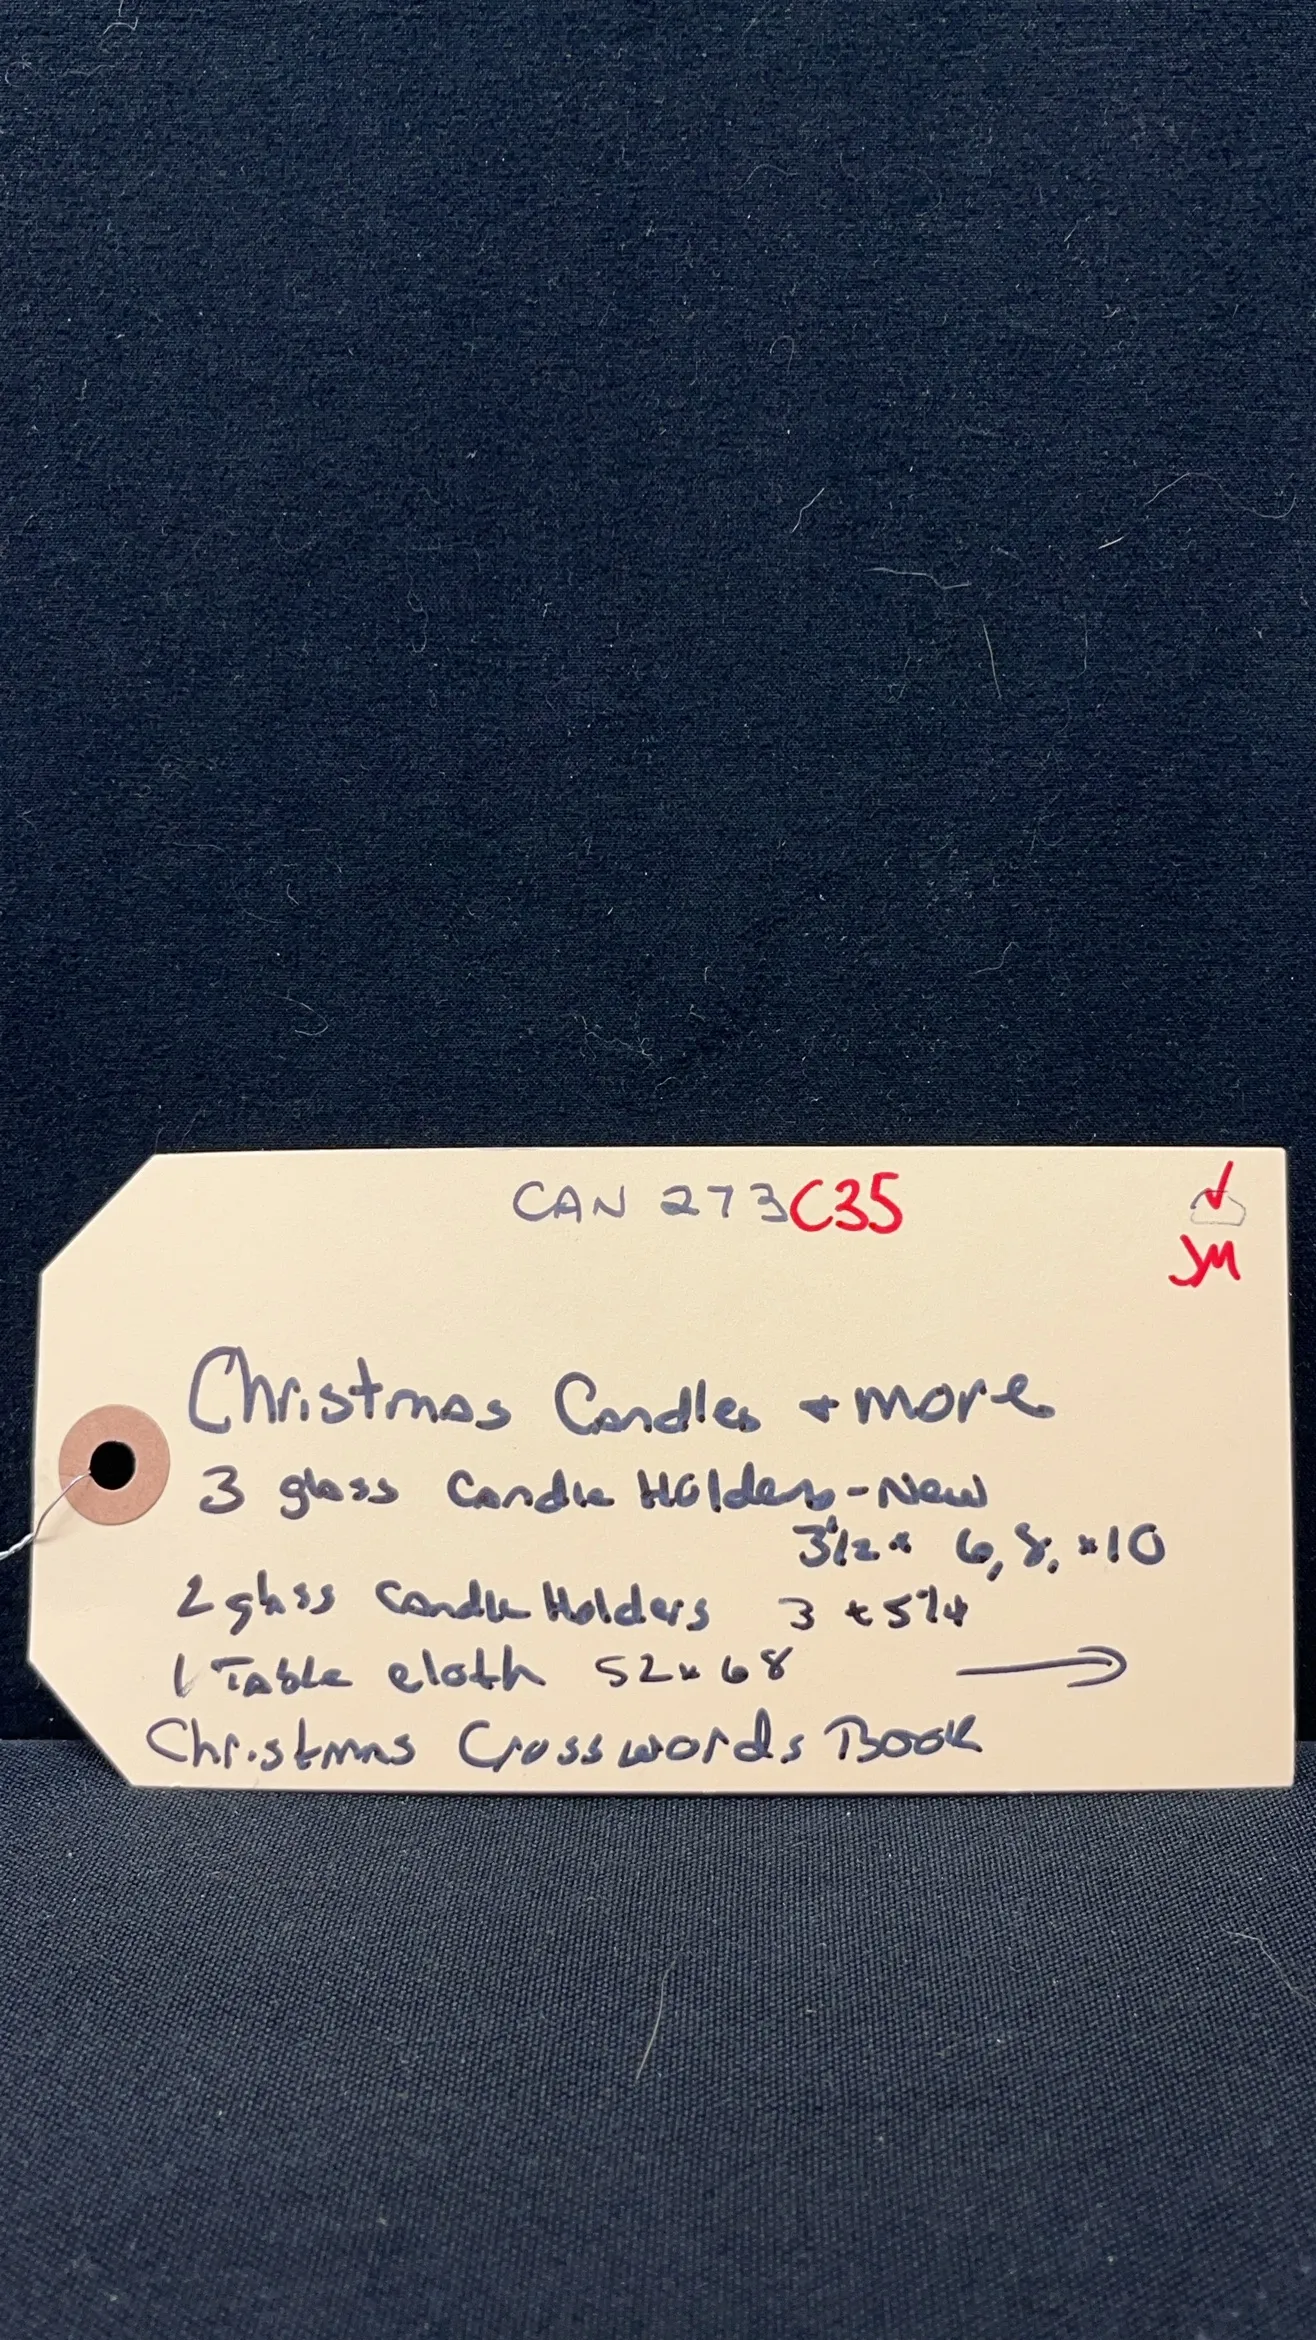 CAN 273 C35
✓
JM
Christmas Candles + more
3 glass Candle Holders - New
3 1/2 x 6, 8, x 10
2 glass Candle Holders 3 x 5 1/4
1 Table cloth 52 x 68 →
Christmas Crosswords Book